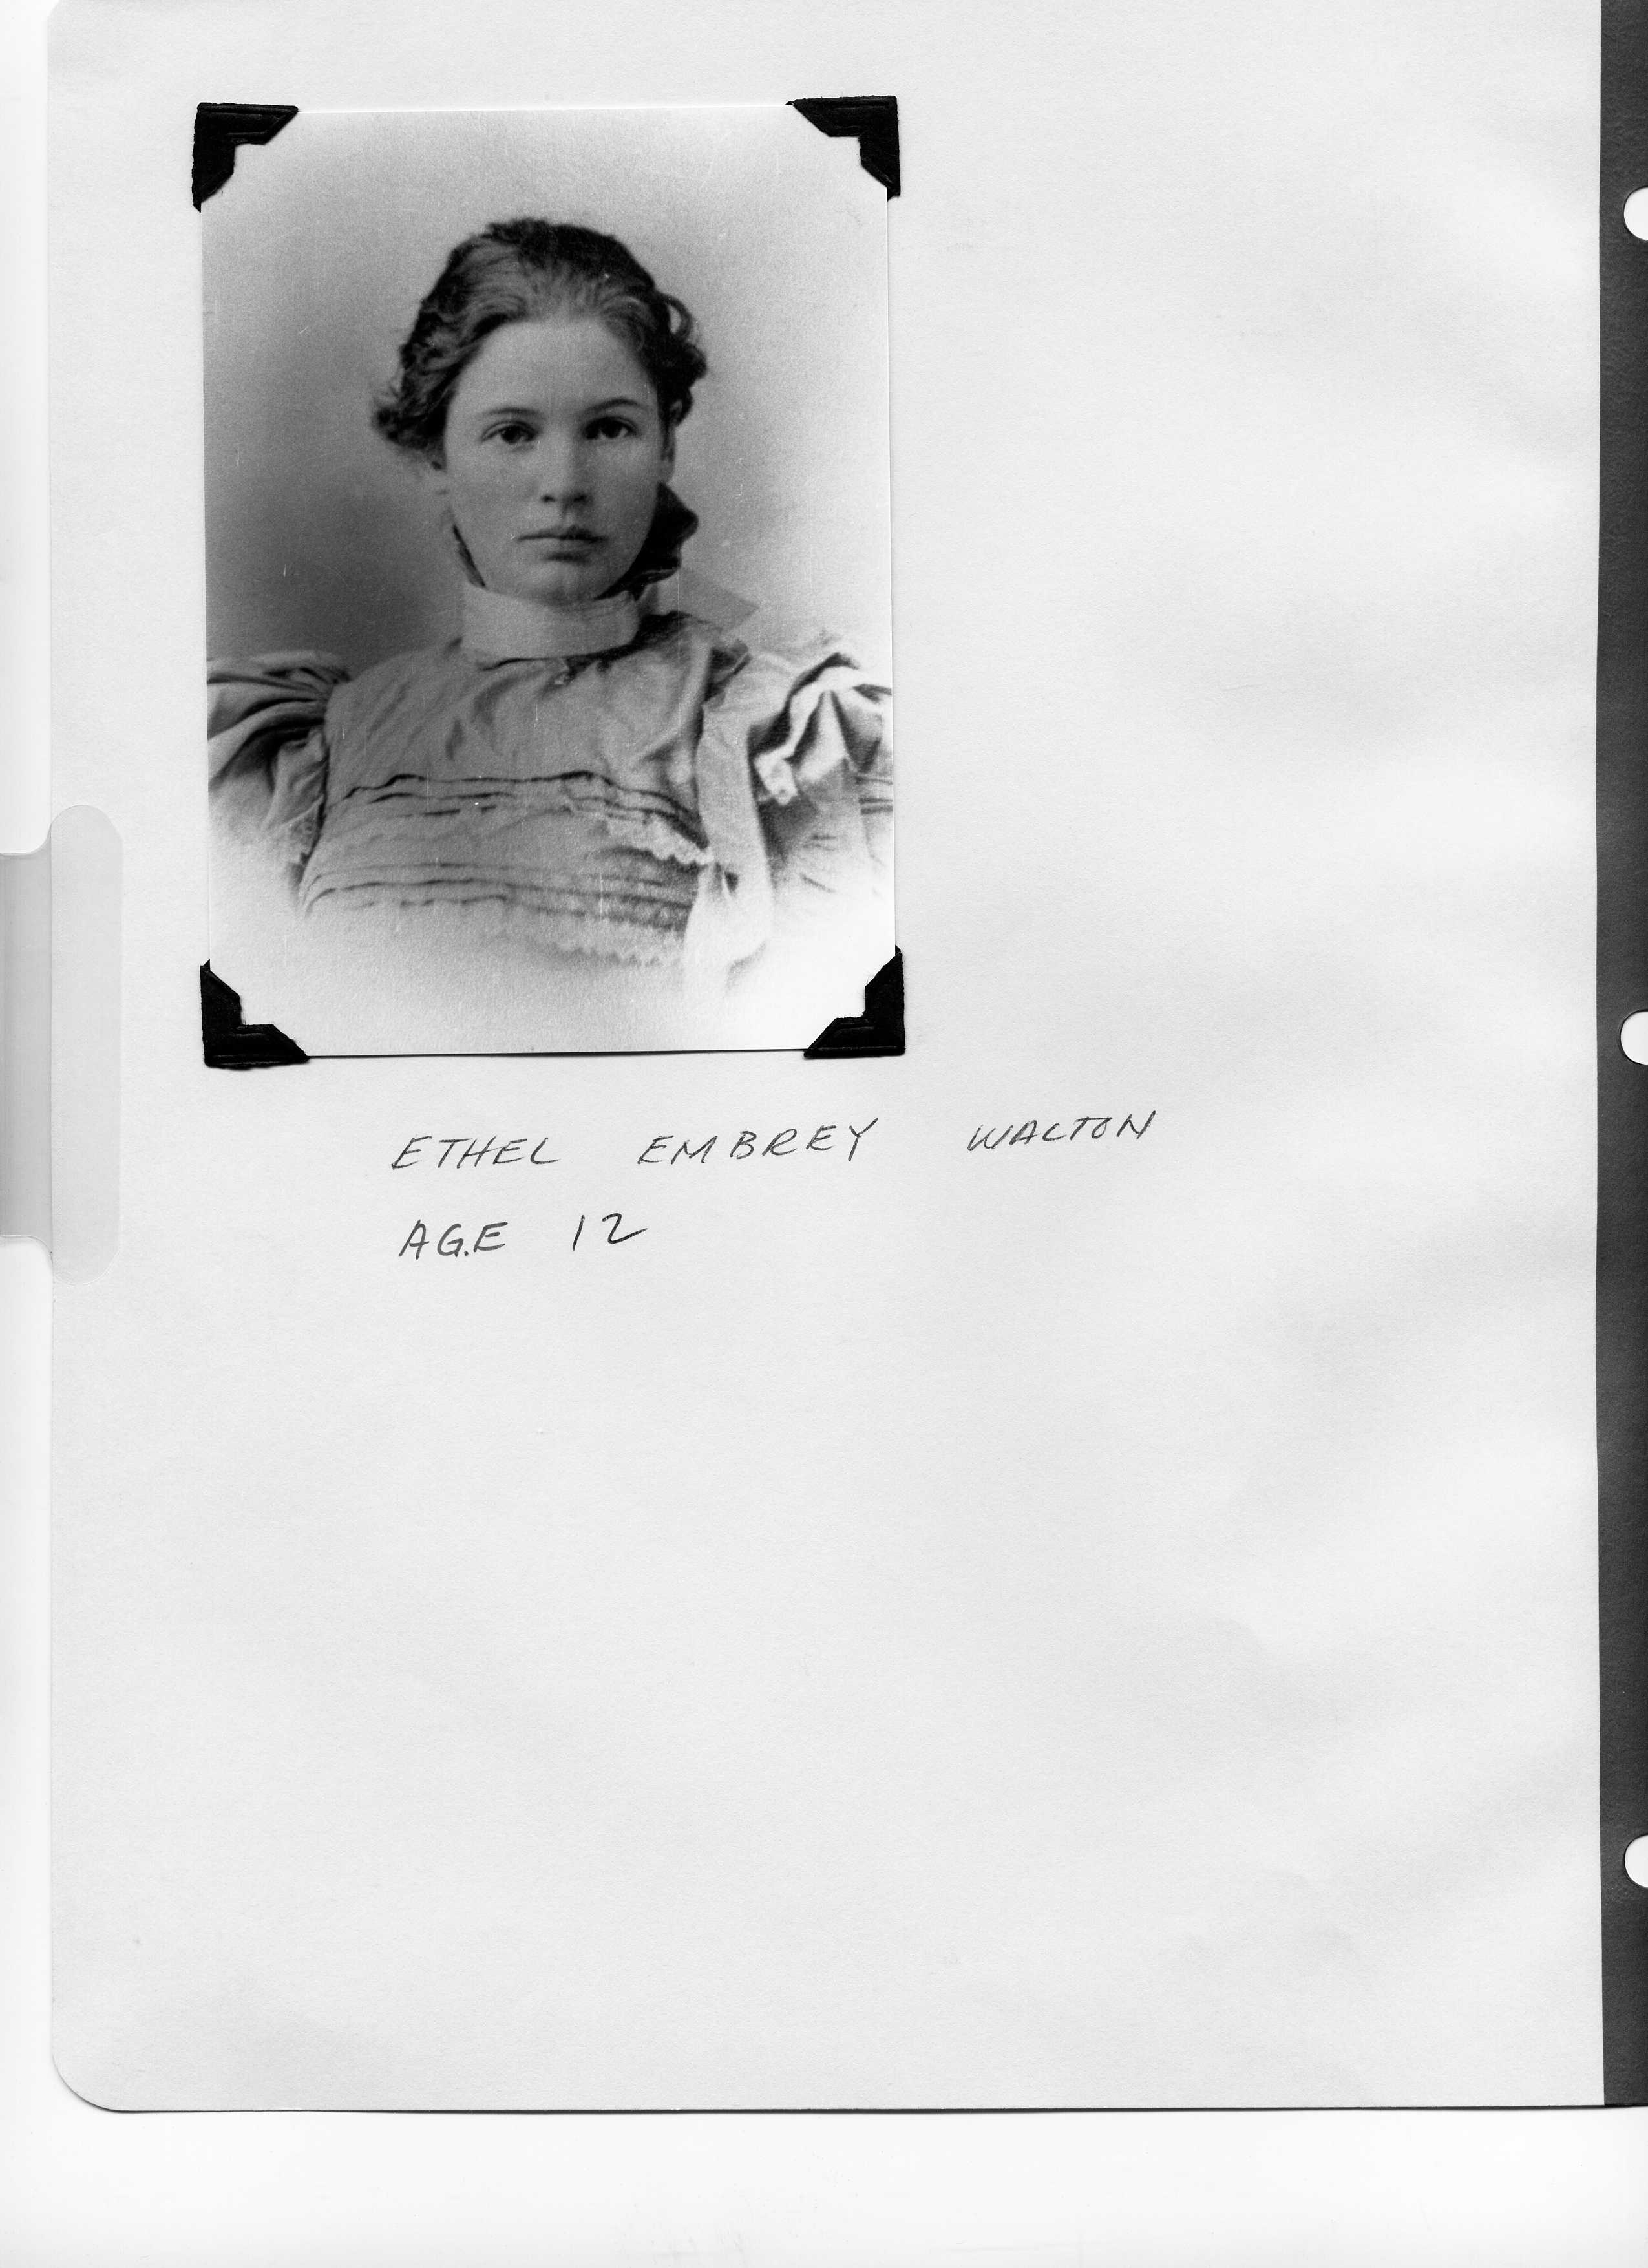 ETHEL EMBREY WALTON
AGE 12